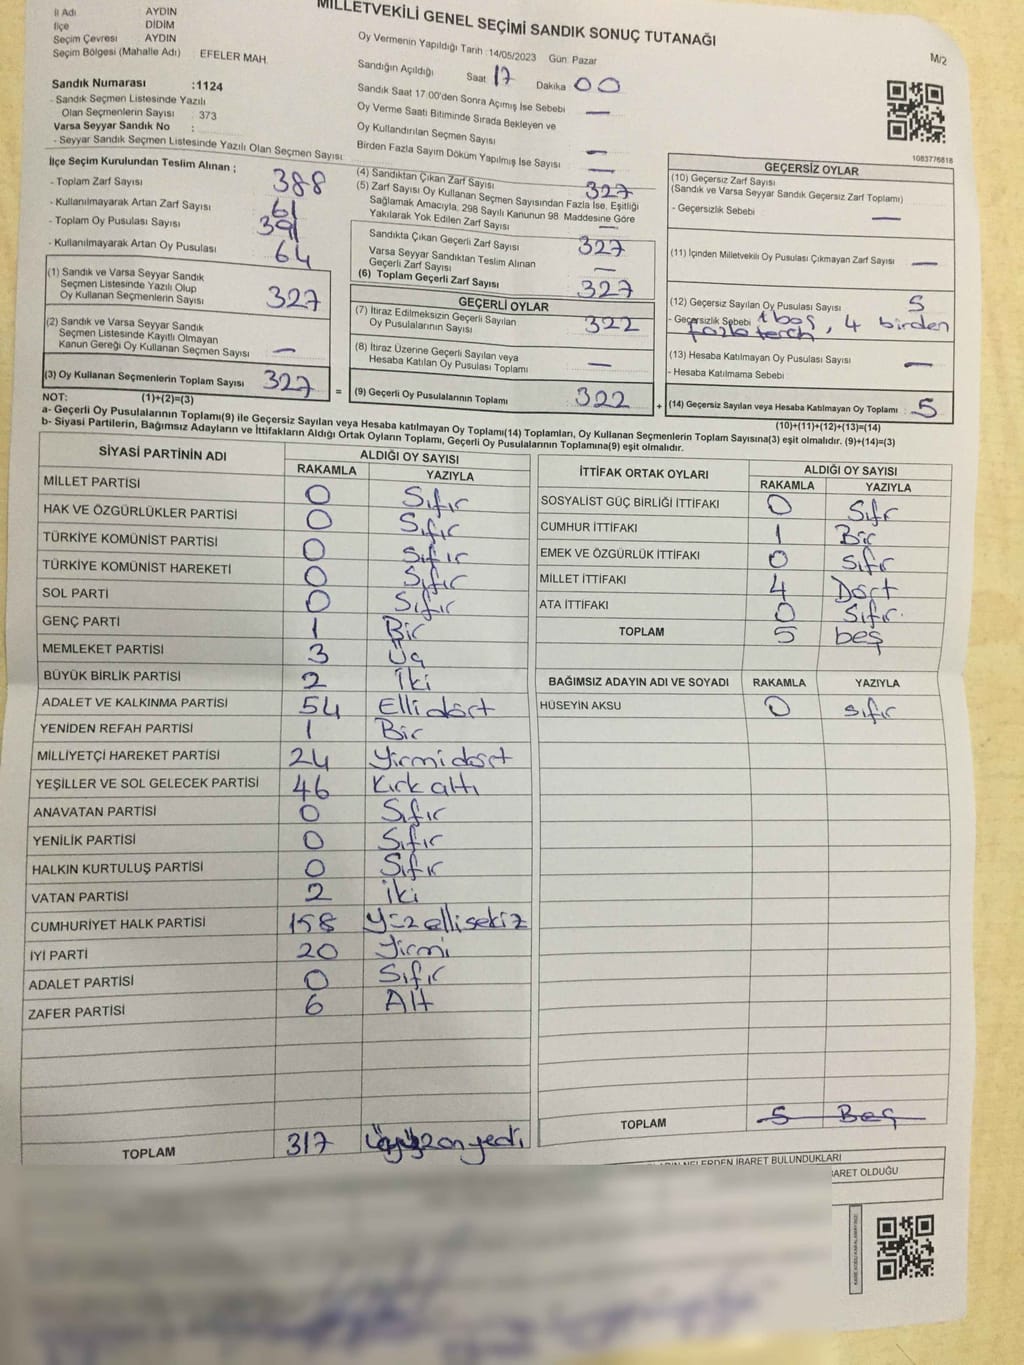 MİLLETVEKİLİ GENEL SEÇİMİ SANDIK SONUÇ TUTANAĞI
M/2
İl Adı AYDIN
İlçe DİDİM
Seçim Çevresi AYDIN
Seçim Bölgesi (Mahalle Adı) EFELER MAH.
Sandık Numarası :1124
- Sandık Seçmen Listesinde Yazılı
Olan Seçmenlerin Sayısı : 373
Varsa Seyyar Sandık No :
- Seyyar Sandık Seçmen Listesinde Yazılı Olan Seçmen Sayısı
Oy Vermenin Yapıldığı Tarih :14/05/2023 Gün: Pazar
Sandığın Açıldığı Saat 17 Dakika 00
Sandık Saat 17:00'den Sonra Açımış İse Sebebi —
Oy Verme Saati Bitiminde Sırada Bekleyen ve
Oy Kullandırılan Seçmen Sayısı —
Birden Fazla Sayım Döküm Yapılmış İse Sayısı —
1083776818
İlçe Seçim Kurulundan Teslim Alınan ;
- Toplam Zarf Sayısı 388
- Kullanılmayarak Artan Zarf Sayısı 61
- Toplam Oy Pusulası Sayısı 391
- Kullanılmayarak Artan Oy Pusulası 64
(1) Sandık ve Varsa Seyyar Sandık
Seçmen Listesinde Yazılı Olup
Oy Kullanan Seçmenlerin Sayısı 327
(2) Sandık ve Varsa Seyyar Sandık
Seçmen Listesinde Kayıtlı Olmayan
Kanun Gereği Oy Kullanan Seçmen Sayısı —
(3) Oy Kullanan Seçmenlerin Toplam Sayısı 327
(4) Sandıktan Çıkan Zarf Sayısı 327
(5) Zarf Sayısı Oy Kullanan Seçmen Sayısından Fazla İse, Eşitliği
Sağlamak Amacıyla, 298 Sayılı Kanunun 98. Maddesine Göre
Yakılarak Yok Edilen Zarf Sayısı —
Sandıkta Çıkan Geçerli Zarf Sayısı 327
Varsa Seyyar Sandıktan Teslim Alınan
Geçerli Zarf Sayısı —
(6) Toplam Geçerli Zarf Sayısı 327
GEÇERLİ OYLAR
(7) İtiraz Edilmeksizin Geçerli Sayılan
Oy Pusulalarının Sayısı 322
(8) İtiraz Üzerine Geçerli Sayılan veya
Hesaba Katılan Oy Pusulası Toplamı —
= (9) Geçerli Oy Pusulalarının Toplamı 322
GEÇERSİZ OYLAR
(10) Geçersiz Zarf Sayısı
(Sandık ve Varsa Seyyar Sandık Geçersiz Zarf Toplamı)
- Geçersizlik Sebebi —
(11) İçinden Milletvekili Oy Pusulası Çıkmayan Zarf Sayısı —
(12) Geçersiz Sayılan Oy Pusulası Sayısı 5
- Geçersizlik Sebebi 1 boş, 4 birden
fazla terch
(13) Hesaba Katılmayan Oy Pusulası Sayısı —
- Hesaba Katılmama Sebebi
+ (14) Geçersiz Sayılan veya Hesaba Katılmayan Oy Toplamı : 5
NOT: (1)+(2)=(3)
(10)+(11)+(12)+(13)=(14)
a- Geçerli Oy Pusulalarının Toplamı(9) ile Geçersiz Sayılan veya Hesaba katılmayan Oy Toplamı(14) Toplamları, Oy Kullanan Seçmenlerin Toplam Sayısına(3) eşit olmalıdır. (9)+(14)=(3)
b- Siyasi Partilerin, Bağımsız Adayların ve İttifakların Aldığı Ortak Oyların Toplamı, Geçerli Oy Pusulalarının Toplamına(9) eşit olmalıdır.
SİYASİ PARTİNİN ADI ALDIĞI OY SAYISI
RAKAMLA YAZIYLA
MİLLET PARTİSİ 0 Sıfır
HAK VE ÖZGÜRLÜKLER PARTİSİ 0 Sıfır
TÜRKİYE KOMÜNİST PARTİSİ 0 Sıfır
TÜRKİYE KOMÜNİST HAREKETİ 0 Sıfır
SOL PARTİ 0 Sıfır
GENÇ PARTİ 1 Bir
MEMLEKET PARTİSİ 3 Üç
BÜYÜK BİRLİK PARTİSİ 2 İki
ADALET VE KALKINMA PARTİSİ 54 Elli dört
YENİDEN REFAH PARTİSİ 1 Bir
MİLLİYETÇİ HAREKET PARTİSİ 24 Yirmi dört
YEŞİLLER VE SOL GELECEK PARTİSİ 46 Kırk altı
ANAVATAN PARTİSİ 0 Sıfır
YENİLİK PARTİSİ 0 Sıfır
HALKIN KURTULUŞ PARTİSİ 0 Sıfır
VATAN PARTİSİ 2 İki
CUMHURİYET HALK PARTİSİ 158 Yüz elli sekiz
İYİ PARTİ 20 Yirmi
ADALET PARTİSİ 0 Sıfır
ZAFER PARTİSİ 6 Altı
TOPLAM 317 üçyüz on yedi
İTTİFAK ORTAK OYLARI ALDIĞI OY SAYISI
RAKAMLA YAZIYLA
SOSYALİST GÜÇ BİRLİĞİ İTTİFAKI 0 Sıfr
CUMHUR İTTİFAKI 1 Bir
EMEK VE ÖZGÜRLÜK İTTİFAKI 0 Sıfır
MİLLET İTTİFAKI 4 Dört
ATA İTTİFAKI 0 Sıfır.
TOPLAM 5 beş
BAĞIMSIZ ADAYIN ADI VE SOYADI RAKAMLA YAZIYLA
HÜSEYİN AKSU 0 sıfır
TOPLAM 5 Beş
NELERDEN İBARET BULUNDUKLARI
BARET OLDUĞU